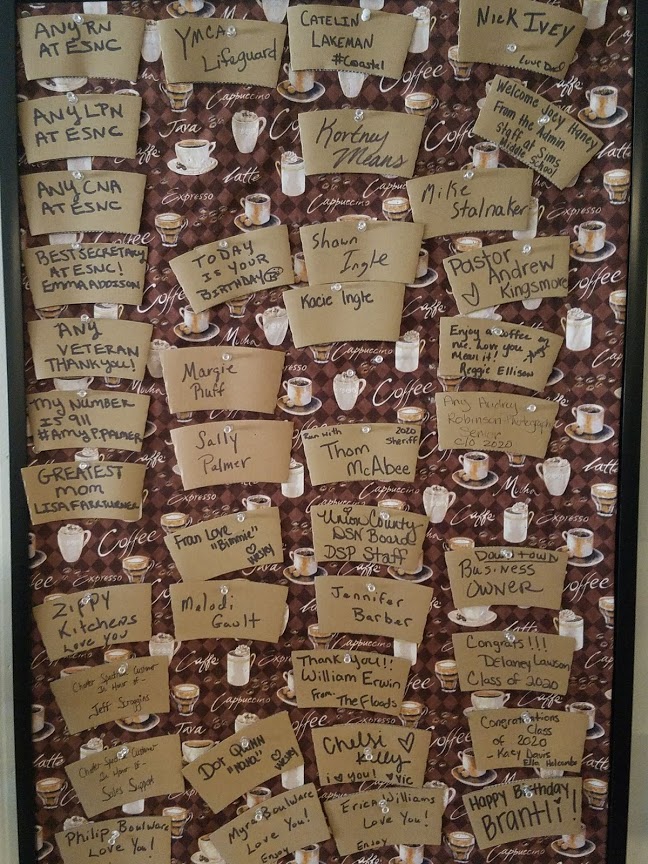 ANY RN
AT ESNC
ANY LPN
AT ESNC
ANY CNA
AT ESNC
BEST SECRETARY
AT ESNC!
EMMA ADDISON
ANY
VETERAN
THANK YOU!
MY NUMBER
IS 911
#AmyP.PALMER
GREATEST
mom
LISA FARR TURNER
ZIPPY
Kitchens
LOVE YOU
Charter Spectrum Customer
In Honor of-
Jeff Scroggins
Charter Spectrum Customer
In Honor of-
Sales Support
Philip Boulware
Love You!
YMCA
Lifeguard
TODAY
IS YOUR
BIRTHDAY
Margie
Ruff
Sally
Palmer
Fran Love
"Bimmie"
Melodi
Gault
Dot Quinn
"NONO"
Myra Boulware
Love You!
Enjoy
CATELIN
LAKEMAN
#Coastal
Kortney
Means
Shawn
Ingle
Kacie Ingle
Run with 2020
Sheriff
Thom
McAbee
Union County
DSN Board
DSP Staff
Jennifer
Barber
Thank You!!
William Erwin
From: The Floods
Chelsi
Kelly
i ♡ you! ♡ Vic
Erica Williams
Love You!
Enjoy
Nick Ivey
Love Dad
Welcome Joey Haney
From the Admin.
Staff at Sims
Middle School
Mike
Stalnaker
Pastor
Andrew
Kingsmore
Enjoy a coffee on
me. Love you
Mean it!
Reggie Ellison
Any Audrey
Robinson Photography
Senior
C/O 2020
Downtown
Business
OWNER
Congrats!!!
Delaney Lawson
Class of 2020
Congratulations
Class
of 2020
- Katey Davis
Ella Holcombe
Happy Birthday
Brantli!